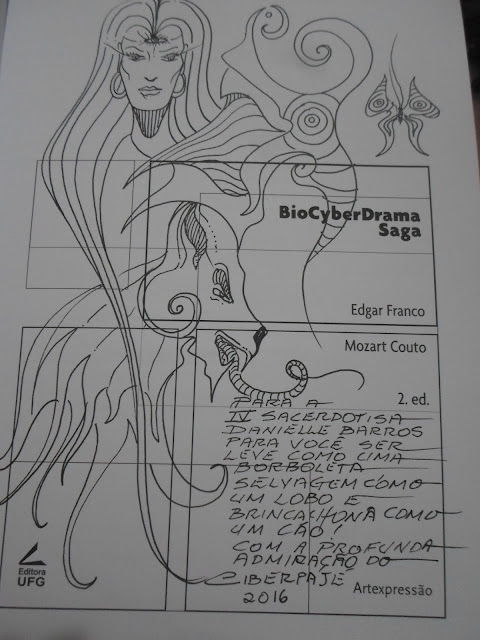 BioCyberDrama
Saga
Edgar Franco
Mozart Couto
2. ed.
PARA A
IV SACERDOTISA
DANIELLE BARROS
PARA VOCÊ SER
LEVE COMO UMA
BORBOLETA
SELVAGEM COMO
UM LOBO E
BRINCALHONA COMO
UM CÃO!
COM A PROFUNDA
ADMIRAÇÃO DO
CIBERPAJE
2016
Artexpressão
Editora
UFG